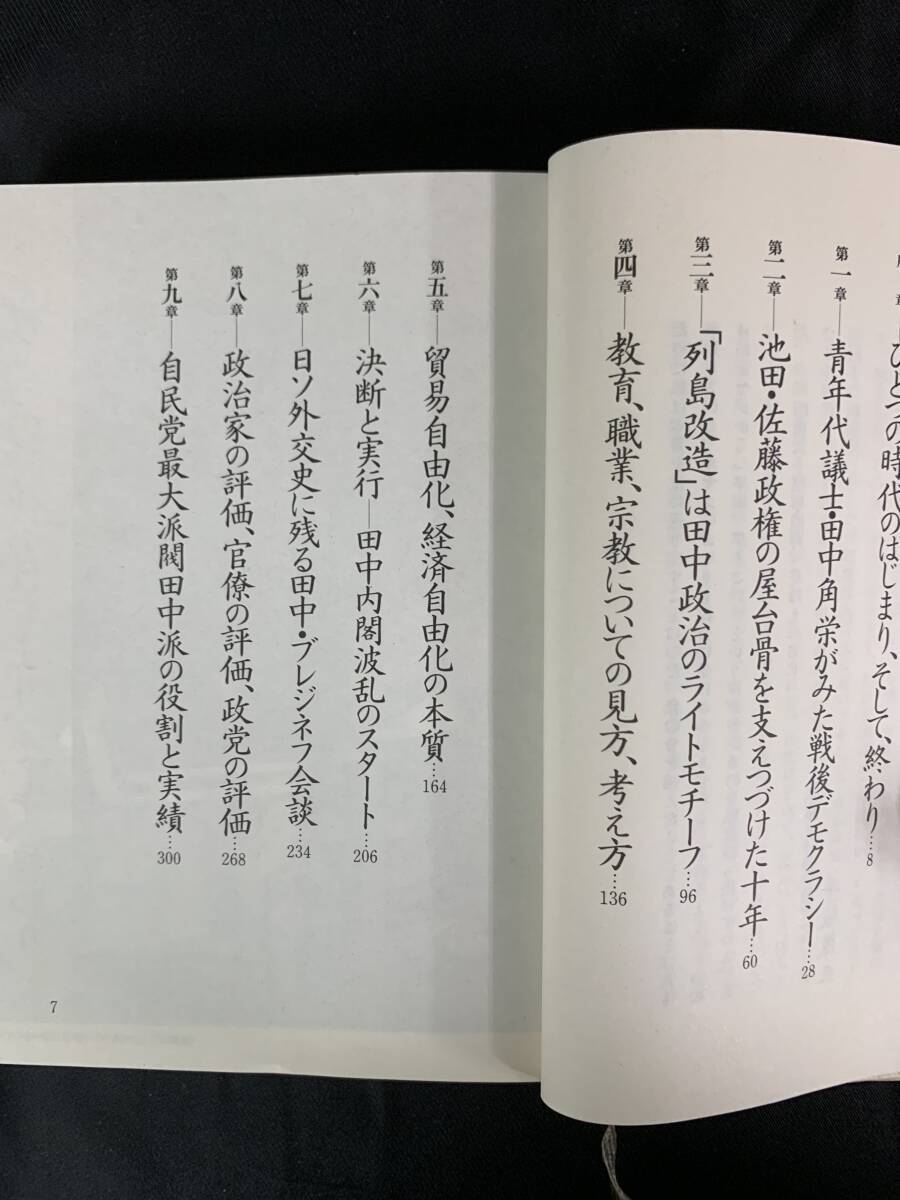 ひとつの時代のはじまり、そして、終わり…8
第一章──青年代議士・田中角栄がみた戦後デモクラシー…28
第二章──池田・佐藤政権の屋台骨を支えつづけた十年…60
第三章──「列島改造」は田中政治のライトモチーフ…96
第四章──教育、職業、宗教についての見方、考え方…136
第五章──貿易自由化、経済自由化の本質…164
第六章──決断と実行──田中内閣波乱のスタート…206
第七章──日ソ外交史に残る田中・ブレジネフ会談…234
第八章──政治家の評価、官僚の評価、政党の評価…268
第九章──自民党最大派閥田中派の役割と実績…300
7